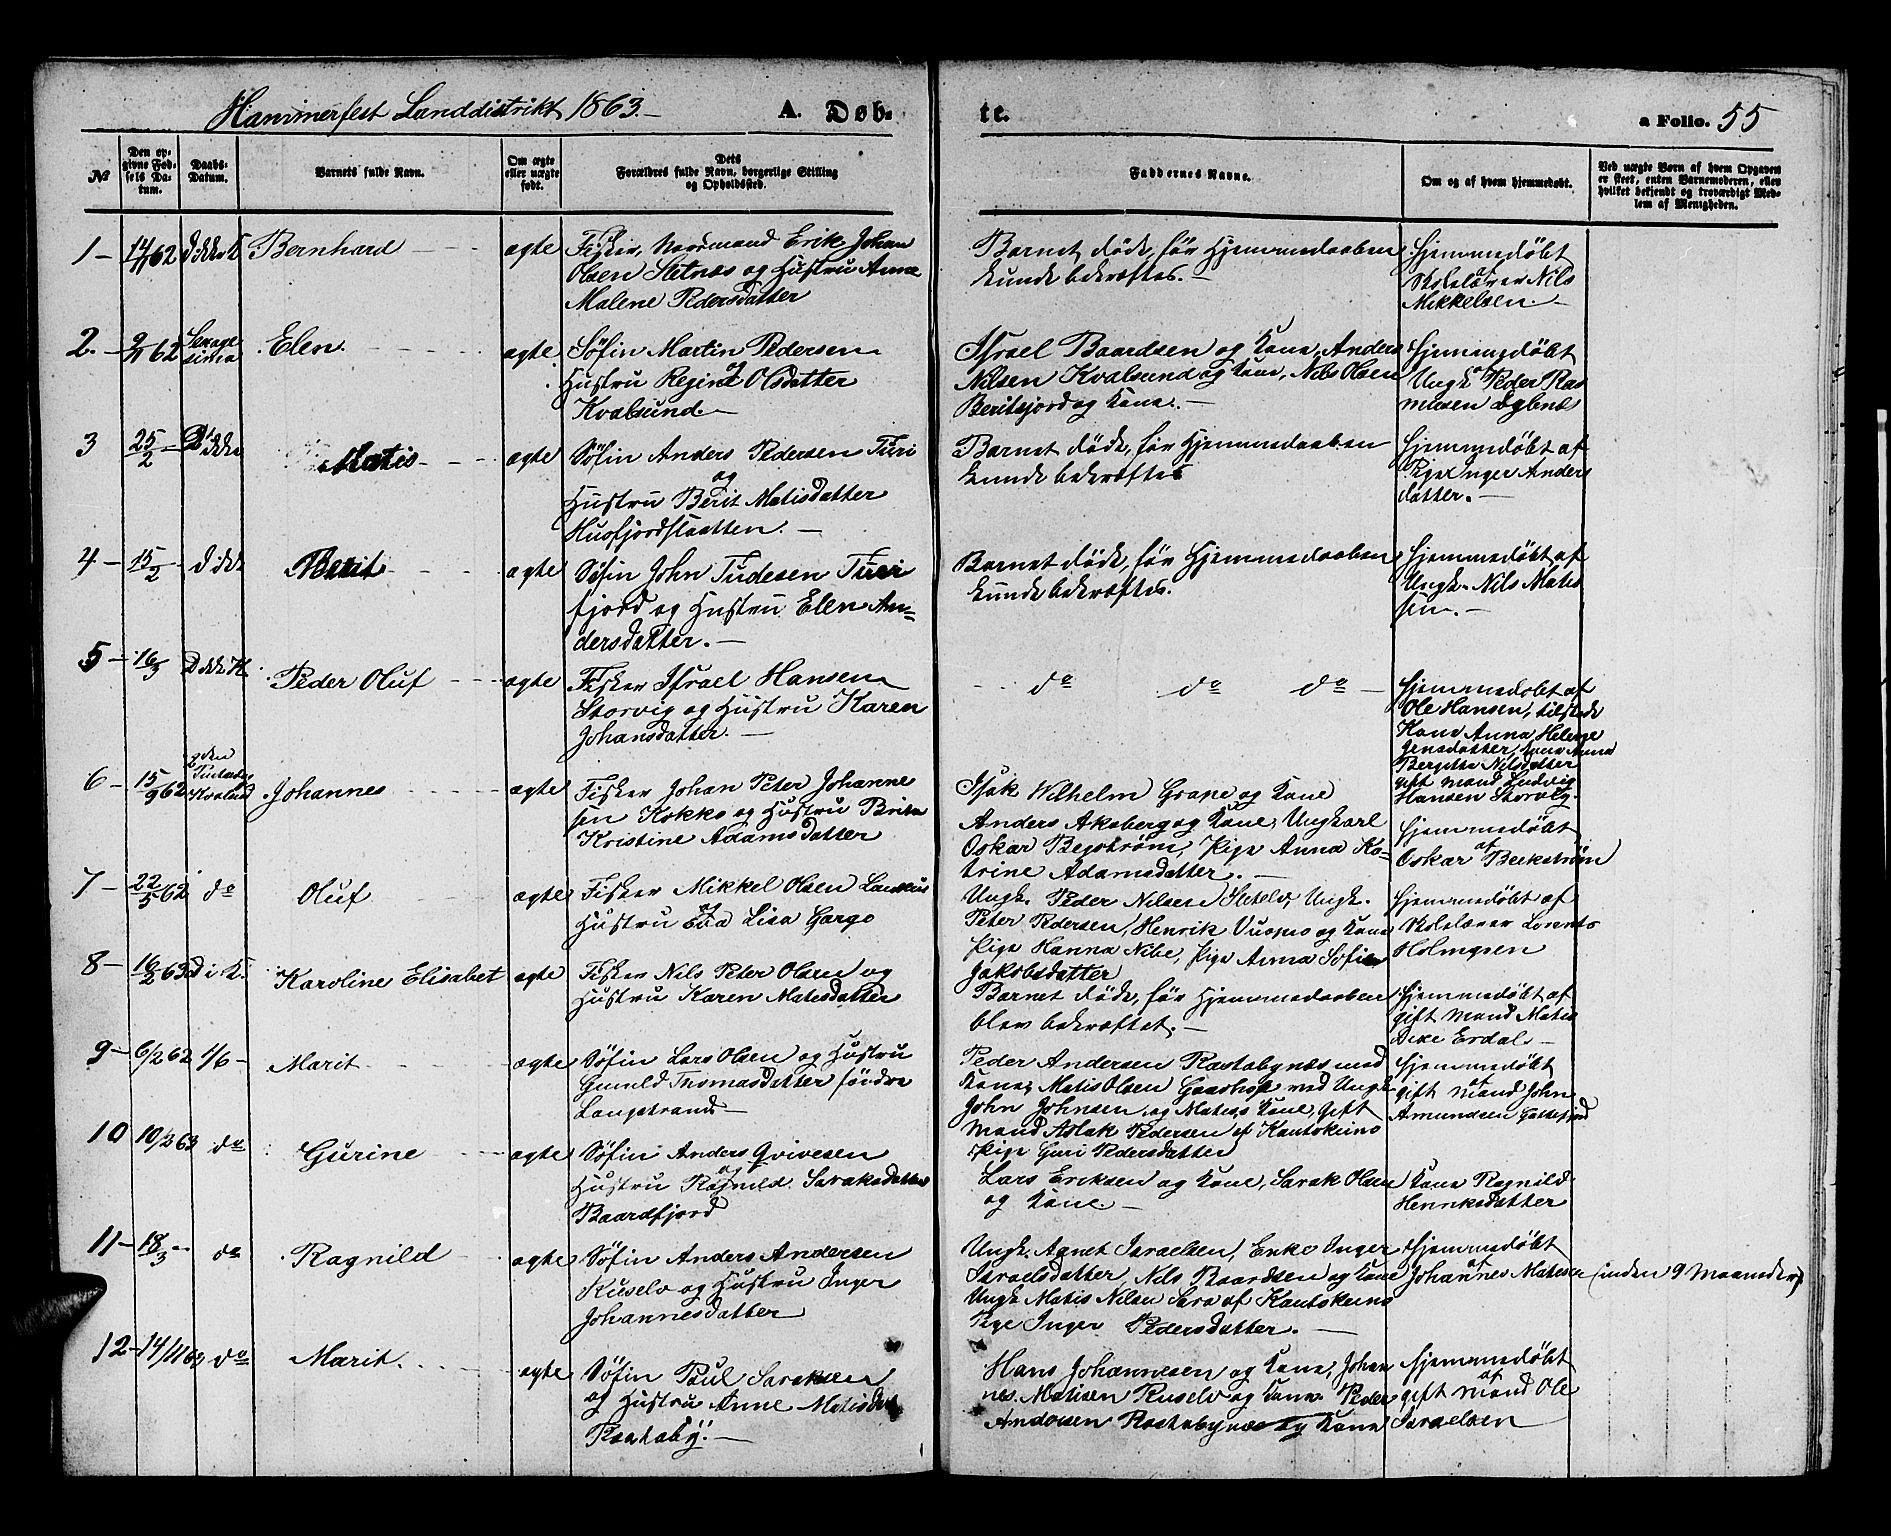 Hammerfest Landdistrikt 1863.—
A. Døb-
te.
a Folio. 55
№
Den op-
givne Fød-
sels Da-
tum.
Daabs-
Datum.
Barnets fulde Navn.
Om ægte
eller uægte
født.
Dets
Forældres fulde Navn, borgerlige Stilling
og Opholdssted.
Faddernes Navne.
Om og af hvem hjemmedøbt.
Ved uægte Børn af hvem Opgaven
er skeet, enten Barnemoderen, eller
hvilket bekjendt og troværdigt Med-
lem af Menigheden.
1 — 14/11 62 Bernhard ægte
Fisker, Nordmand Erik Johan
Olsen Sletnæs og Hustru Anne
Malene Pedersdatter
Barnet døde, før Hjemmedaaben
kunde bekræftes.—
Hjemmedøbt
af Skolelærer Nils
Mikkelsen.—
2. — 9/11 62 Sexage
sima Elen ægte
Søfin Martin Pedersen
og Hustru Regine Olsdatter
Kvalsund.—
Israel Baardsen og Kone, Anders
Nilsen Kvalsund og Kone, Nils Olsen
Beritsjord og Kone.—
Hjemmedøbt
af Ungk. Peder Ras
musen
3 25/2 — Matis ægte
Søfin Anders Pedersen Turi
og
Hustru Berit Matisdatter
Husfjordslaatten.—
Barnet døde, før Hjemmedaaben
kunde bekræftes
Hjemmedøbt af
Pige Inger Anders
datter.—
4 — 15/2 — Berit ægte
Søfin John Tudesen Turi
fjord og Hustru Elen An-
dersdatter.—
Barnet døde, før Hjemmedaaben
kunde bekræftes.
Hjemmedøbt af
Ungk. Nils Matis
sen.—
5 — 16/3 Peder Oluf ægte
Fisker Israel Hansen
Storvig og Hustru Karen
Johansdatter.—
do do do —
Hjemmedøbt af
Ole Hansen, tilstede
Kone Anna Helene
Jensdatter, Kone Anna
Bergitte Nilsdatter
gift Mand Ludvig
Hansen Storvig.
6 — 15/9 62 Johannes ægte
Fisker Johan Peter Johanne
sen Kokko og Hustru Brita
Kristine Adamsdatter
Isak Wilhelm Grape og Kone
Anders Akoberg og Kone, Ungkarl
Oskar Begstrøm, Pige Anna Ka-
trine Adamsdatter.—
Hjemmedøbt
af Oskar Beckstrøm
7 — 22/5 62 do Oluf ægte
Fisker Mikkel Olsen
og Hustru Eva Lisa Gargo
Ungk. Peder Nilsen Ungk.
Peter Pedersen, Henrik Vuopio og Kone
Pige Hanna Nibe, Pige Anna Sofie
Jakobsdatter
Hjemmedøbt af
Skolelærer Lorents
Holmgsen
8 — 16/2 63 D i K. Karoline Elisabet ægte
Fisker Nils Peter Olsen og
Hustru Karen Matisdatter
Barnet døde, før Hjemmedaaben
blev bekræftet.—
Hjemmedøbt af
gift Mand Matis
Erdal—
9 — 6/2 62 1/6 — Marit ægte
Søfin Lars Olsen og Hustru
Gunild Thomasdatter søndre
Langstrand—
Peder Andersen Rastabynæs med
Kone, Matis Olsen ved Ungk.
John Johnsen og Matis's Kone, gift
Mand Aslak Pedersen af Kautokeino
Pige Guri Pedersdatter
Hjemmedøbt
af gift Mand John
Amundsen
10 10/2 63 do Gurine ægte
Søfin Anders Qvivesen
og Hustru Ragnild Saraksdatter
Baardfjord
Lars Eriksen og Kone, Sarak Olsen
og Kone.—
Kone Ragnild
Henriksdatter
11 — 18/3 — do Ragnild ægte
Søfin Anders Andersen
Kuselv og Hustru Inger
Johannesdatter
Ungk. Agnet Israelsen, Enke Inger
Israelsdatter, Nils Baardsen og Kone
Ungk. Matis Nilsen Sara af Kautokeino
Pige Inger Pedersdatter.—
Hjemmedøbt
af Johannes Matisen (inden 9 Maaneder)
12 — 14/11 62 do Marit. ægte
Søfin Paul Saraksen
og Hustru Anne Matisdat
Rastaby.—
Hans Johannesen og Kone, Johan
nes Matisen Kuselv og Kone Peder
Andersen Rastabynæs og Kone
Hjemmedøbt
af gift Mand Ole
Israelsen